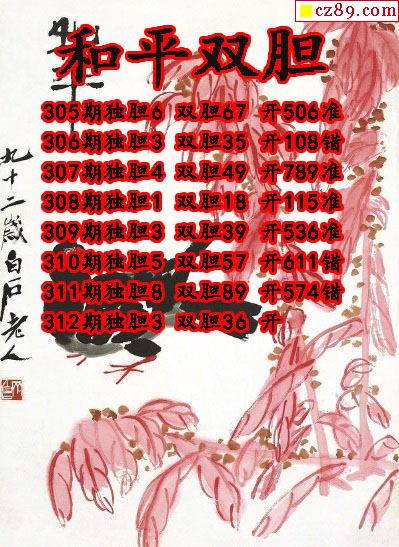 cz89.com
和平双胆
305期独胆6 双胆67 开506准
306期独胆3 双胆35 开108错
307期独胆4 双胆49 开789准
308期独胆1 双胆18 开115准
309期独胆3 双胆39 开536准
310期独胆5 双胆57 开611错
311期独胆8 双胆89 开574错
312期独胆3 双胆36 开
九十二岁白石老人